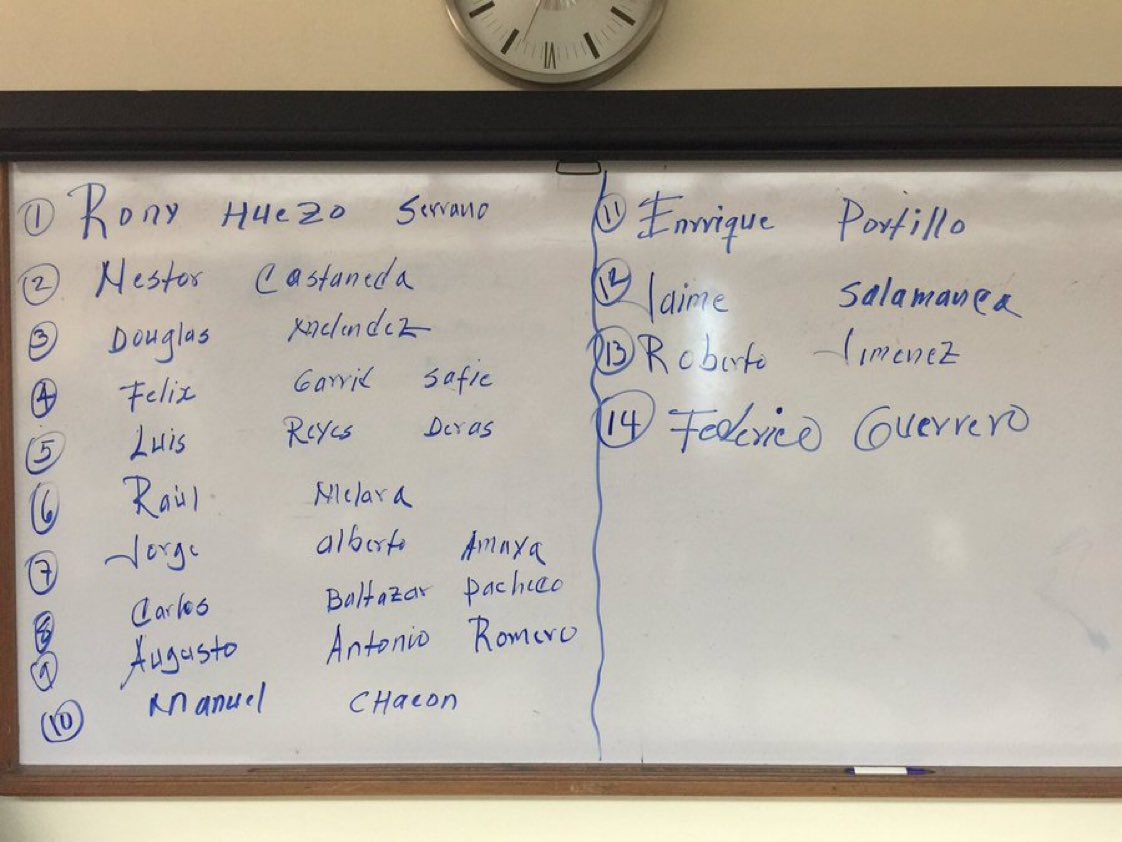 1 Rony Huezo Serrano
2 Nestor Castaneda
3 Douglas Melendez
4 Felix Garrid Safie
5 Luis Reyes Deras
6 Raúl Melara
7 Jorge alberto Amaya
8 Carlos Baltazar pacheco
9 Augusto Antonio Romero
10 Manuel CHacon
11 Enrrique Portillo
12 Jaime Salamanca
13 Roberto Jimenez
14 Federico Guerrero
VI